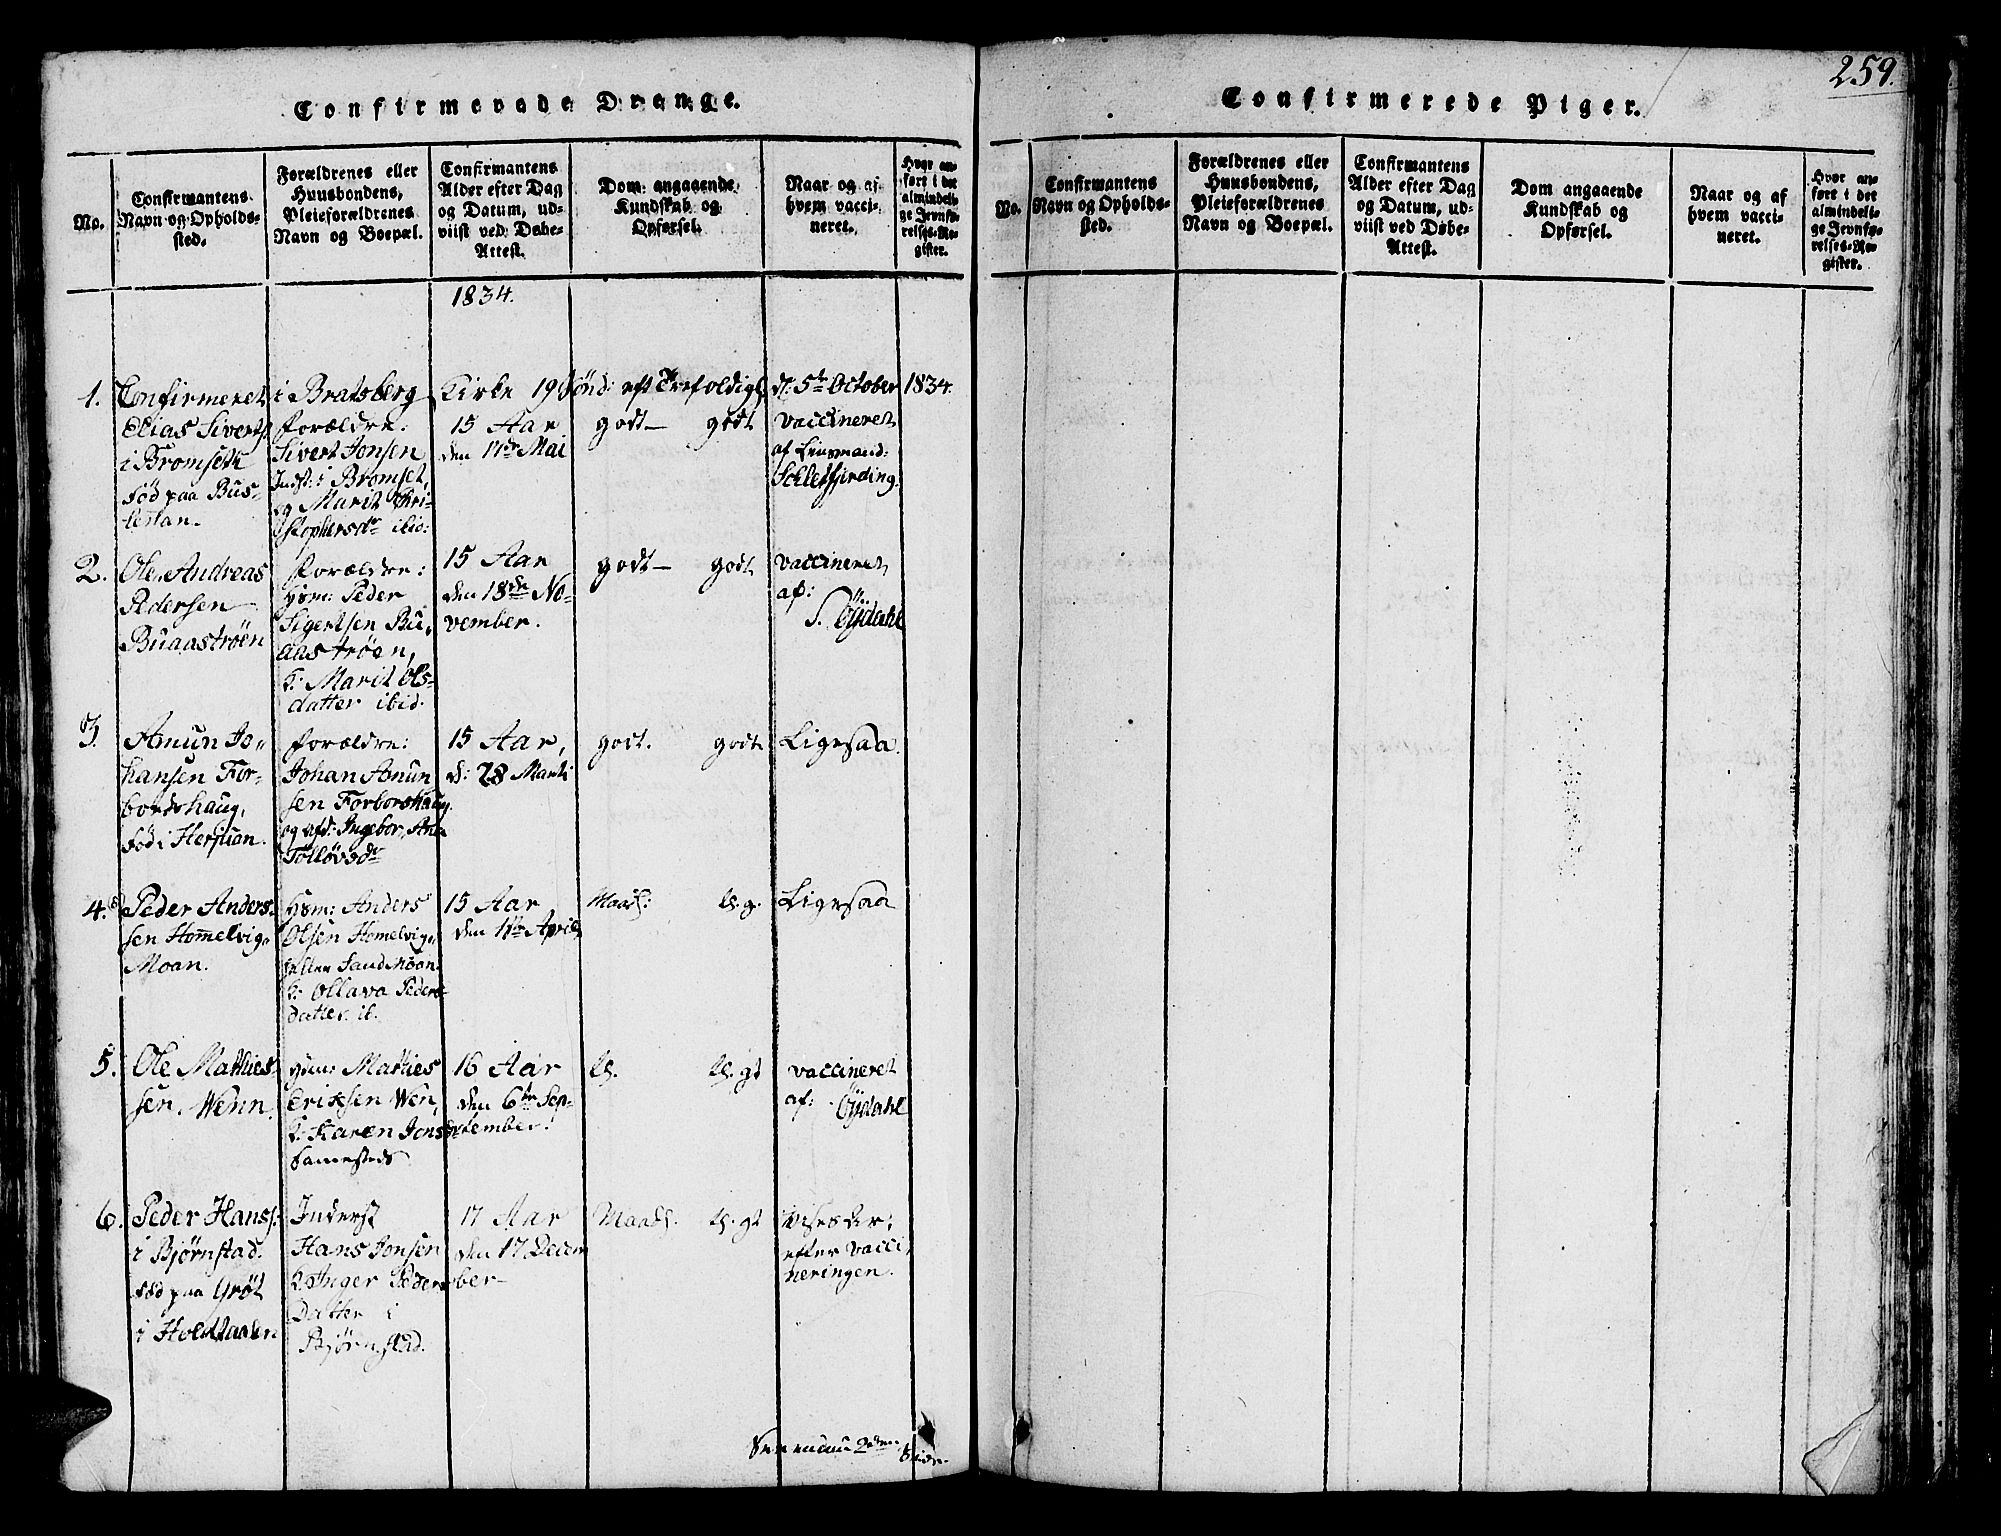 259.
Confirmerede Drenge.
No.
Confirmantens
Navn og Opholds-
sted.
Forældrenes eller
Huusbondens,
Pleieforældrenes
Navn og Boepæl.
Confirmantens
Alder efter Dag
og Datum, ud-
viist ved Døbe-
Attest.
Dom angaaende
Kundskab og
Opførsel.
Naar og af
hvem vacci-
neret.
Hvor an-
ført i det
almindeli-
ge Jevnfø-
relses-Re-
gister.
1834.
Confirmeret i Bratsberg Kirke 19 Sönd: eft Trefoldigh. d: 5te October 1834.
1.
Elias Siverts.
i Bromseth
föd paa Bus-
lestan.
Forældre:
Sivert Jonsen
Inds: i Bromset,
og Marit Chri-
stophersdr ibid:
15 Aar
den 17de Mai
godt— godt
vaccineret
af Lensmand:
Schletfjerding.
2.
Ole Andreas
Pedersen
Buaaströen
Forældre:
Hsm: Peder
Sigertsen Bu,
aaströen,
K: Marit Ols-
datter ibid.
15 Aar
den 18de No-
vember.
godt— godt
vaccineret
af:
S. Öydahl
3.
Amun Jo-
hansen For-
bordshaug,
Föd i Herjuan.
Forældre:
Johan Amun
sen Forborshaug
og afd: Ingebor, Ana
Tollövsdr
15 Aar,
d: 28 Marti
godt. godt
Ligesaa.
4.
Peder Anders-
sen Hom̅elvig-
Moan.
Hsm: Anders
Olsen Homelvig-
eller Sandmoan
K: Ollava Peders-
datter ib.
15 Aar
den 11te April
Maads: tl. g.
Ligesaa
5.
Ole Mathies-
sen. Wenn.
Hsm: Mathies
Eriksen Wen,
K: Karen Jonsdr
samesteds
16 Aar
den 6te Sep-
tember.
tl. tl. gt
vaccineret
af: Öydahl
6.
Peder Hans:
i Bjørnstad.
föd paa Gröt
i Holdtaalen
Inderst
Hans Jonsen
K: Inger Peders
Datter i
Bjørnstad.
17 Aar
den 17 Decem
ber—
Maads. tl. gt
vises der:
efter vacci,
neringen.
2den Side.
Confirmerede Piger.
No.
Confirmantens
Navn og Opholds-
sted.
Forældrenes eller
Huusbondens,
Pleieforældrenes
Navn og Boepæl.
Confirmantens
Alder efter Dag
og Datum, ud-
viist ved Døbe-
Attest.
Dom angaaende
Kundskab og
Opførsel.
Naar og af
hvem vacci-
neret.
Hvor an-
ført i det
almindeli-
ge Jevnfø-
relses-Re-
gister.